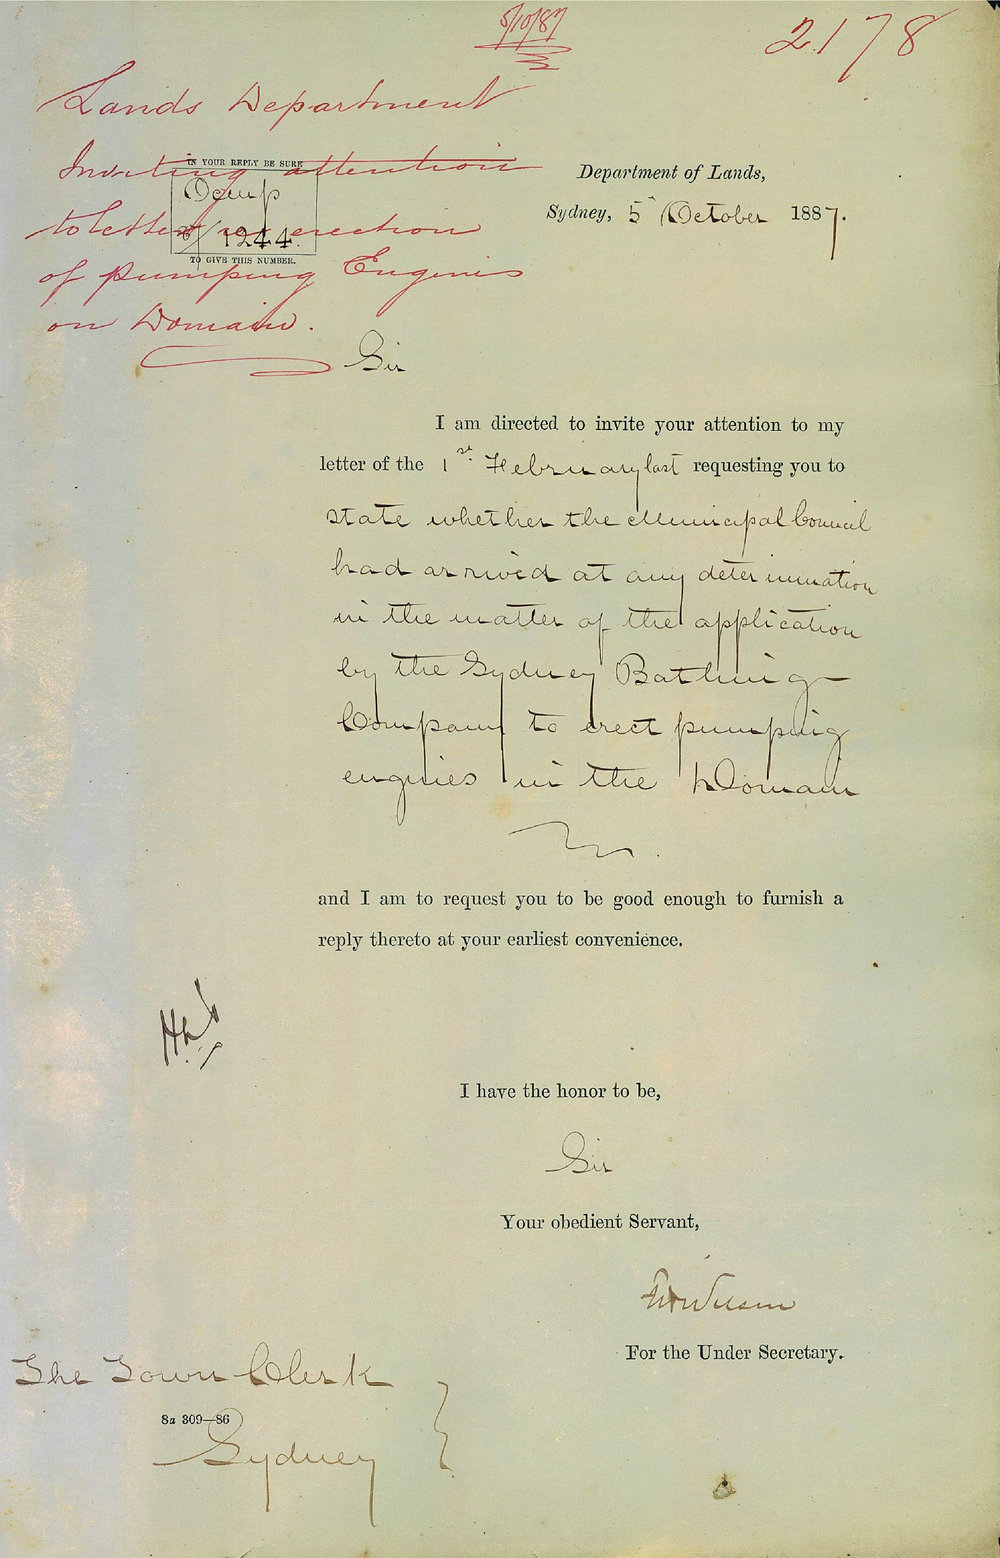 5/10/87
2178
Lands Department
Inviting attention
to letter re erection
of Pumping Engines
on Domain.
IN YOUR REPLY BE SURE
Ocup
1244.
TO GIVE THIS NUMBER.
Department of Lands,
Sydney, 5th October 1887.
Sir
I am directed to invite your attention to my
letter of the 1st. February last requesting you to
state whether the Municipal Council
had arrived at any determination
in the matter of the application
by the Sydney Bathing
Company to erect pumping
engines in the Domain
and I am to request you to be good enough to furnish a
reply thereto at your earliest convenience.
I have the honor to be,
Sir
Your obedient Servant,
For the Under Secretary.
The Town Clerk
8a 309—86
Sydney